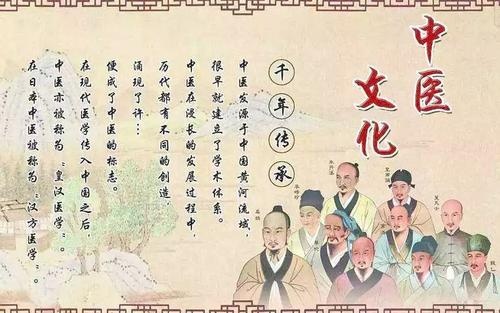 中医
文化
千年传承
中医发源于中国黄河流域,
很早就建立了学术体系。
中医在漫长的发展过程中,
历代都有不同的创造,
涌现了许…
便成了中医的标志。
在现代医学传入中国之后,
中医亦被称为"皇汉医学"。
在日本中医被称为"汉方医学"。
朱丹溪
李时珍
皇甫谧